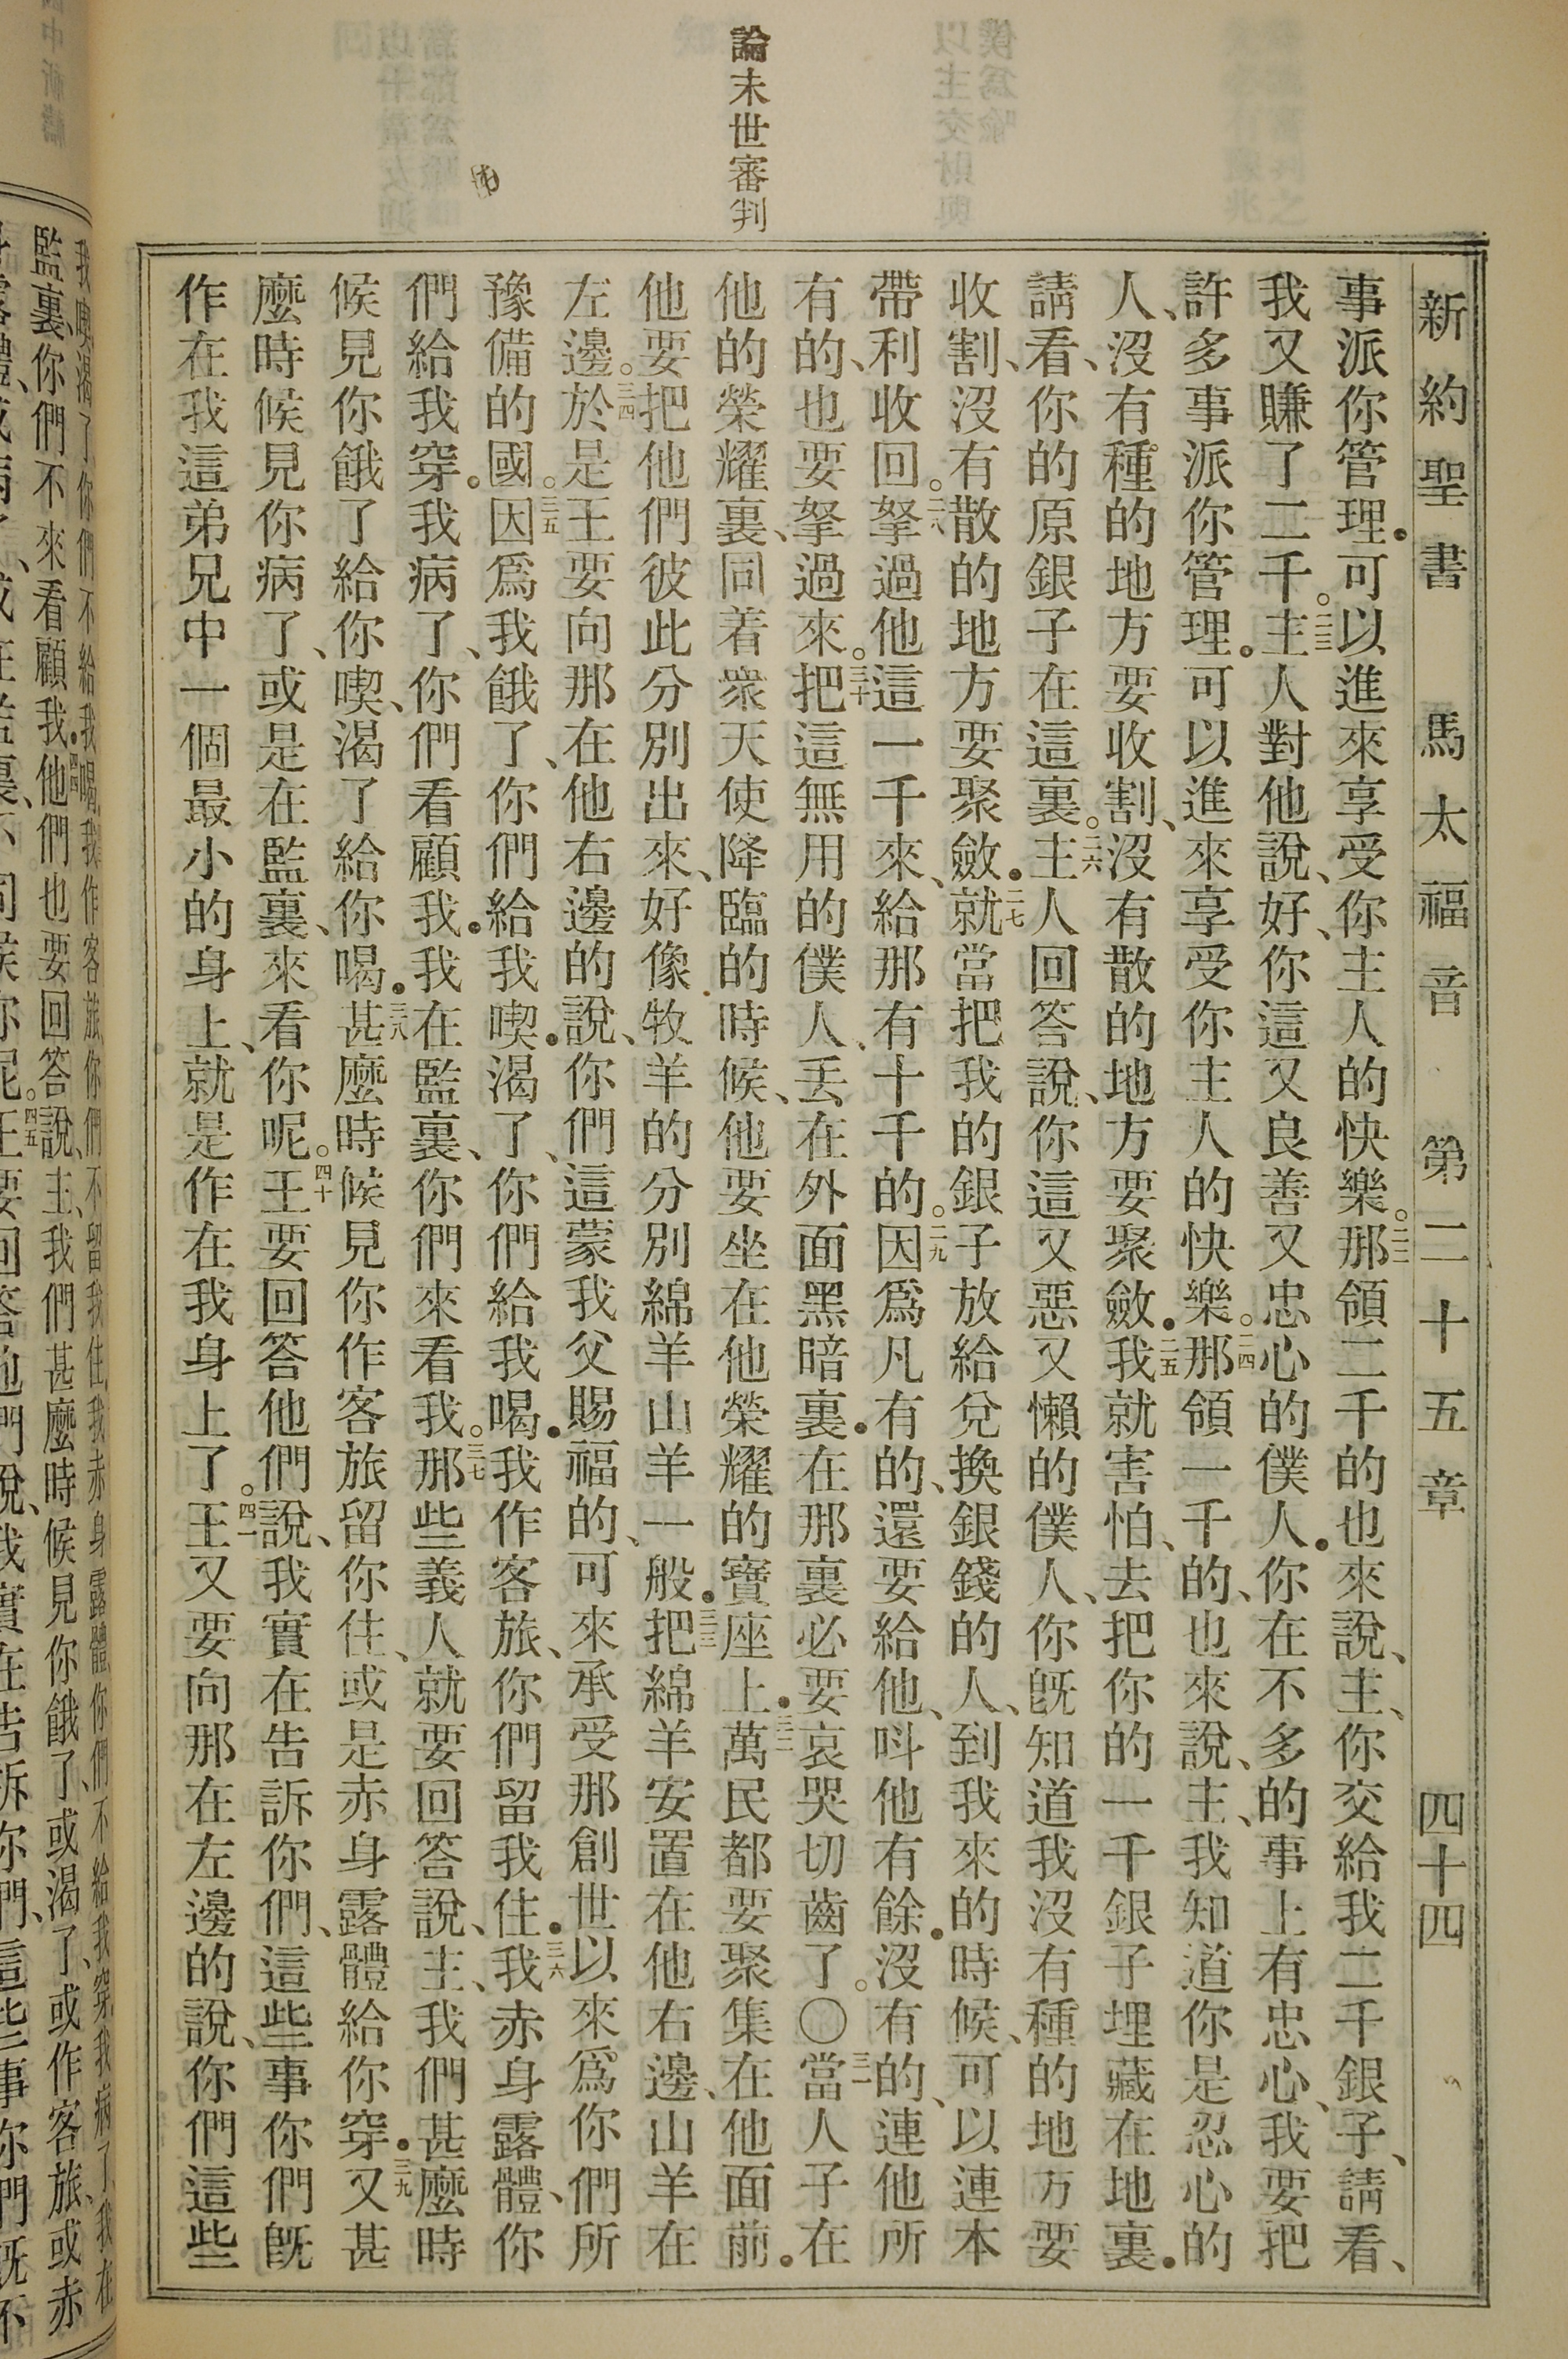 論末世審判
新約聖書 馬太福音 第二十五章 四十四
事派你管理．可以進來享受你主人的快樂。二二那領二千的也來說、主、你交給我二千銀子、請看、
我又賺了二千。二三主人對他說、好、你這又良善又忠心的僕人．你在不多的事上有忠心、我要把
許多事派你管理．可以進來享受你主人的快樂。二四那領一千的、也來說、主、我知道你是忍心的
人、沒有種的地方要收割、沒有散的地方要聚斂．二五我就害怕、去把你的一千銀子埋藏在地裏．
請看、你的原銀子在這裏。二六主人回答說、你這又惡又懶的僕人、你旣知道我沒有種的地方要
收割、沒有散的地方要聚斂．二七就當把我的銀子放給兌換銀錢的人、到我來的時候、可以連本
帶利收回。二八拏過他這一千來、給那有十千的。二九因爲凡有的、還要給他、呌他有餘．沒有的、連他所
有的、也要拏過來。三十把這無用的僕人、丟在外面黑暗裏．在那裏必要哀哭切齒了。〇三一當人子在
他的榮耀裏、同着衆天使降臨的時候、他要坐在他榮耀的寶座上．三二萬民都要聚集在他面前．
他要把他們彼此分別出來、好像牧羊的分別綿羊山羊一般．三三把綿羊安置在他右邊、山羊在
左邊。三四於是王要向那在他右邊的說、你們這蒙我父賜福的、可來承受那創世以來爲你們所
豫備的國。三五因爲我餓了、你們給我喫．渴了、你們給我喝．我作客旅、你們留我住．三六我赤身露體、你
們給我穿．我病了、你們看顧我．我在監裏、你們來看我。三七那些義人就要回答說、主、我們甚麼時
候見你餓了給你喫、渴了給你喝．三八甚麼時候見你作客旅留你住、或是赤身露體給你穿．三九又甚
麼時候見你病了、或是在監裏、來看你呢。四十王要回答他們說、我實在告訴你們、這些事你們旣
作在我這弟兄中一個最小的身上、就是作在我身上了。四一王又要向那在左邊的說、你們這些
我喫渴了你們不給我喝、我作客旅、你們不留我住、我赤身露體、你們不給我穿、我病了、我在
監裏、你們不來看顧我．四四他們也要回答說、主、我們甚麼時候見你餓了、或渴了、或作客旅、或赤